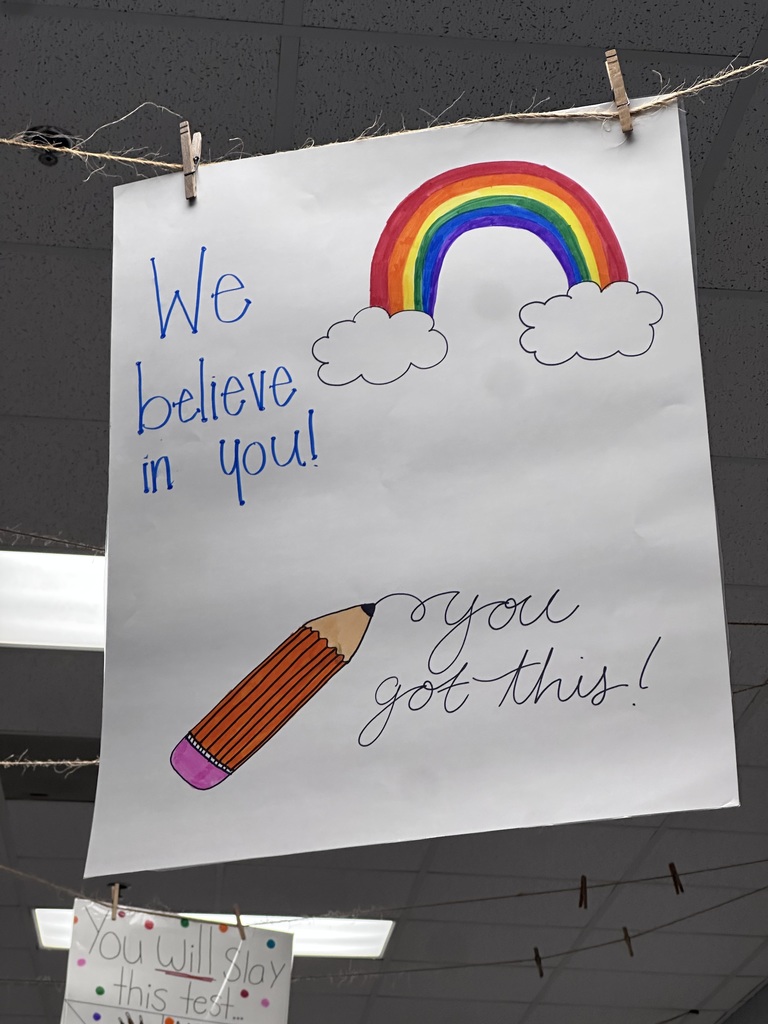 We
believe
in you!
you
got this!
You Will Slay
this test...